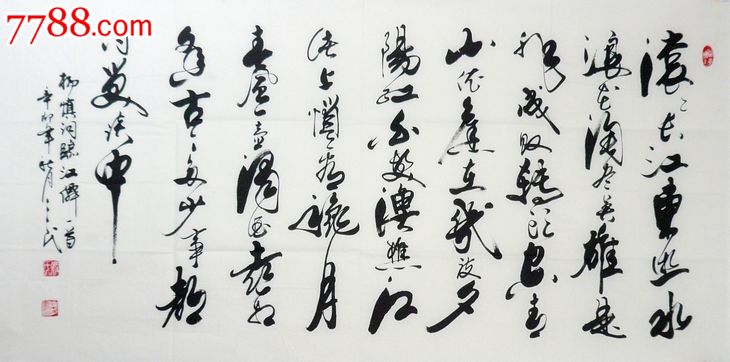 7788.com
滚滚长江東逝水
浪花淘尽英雄是
非成败转頭空青
山依舊在幾度夕
陽红白发渔樵江
渚上惯看秋月
春風一壶濁酒喜相
逢古今多少事都
付笑谈中
杨慎词臨江僊一首
辛卯年